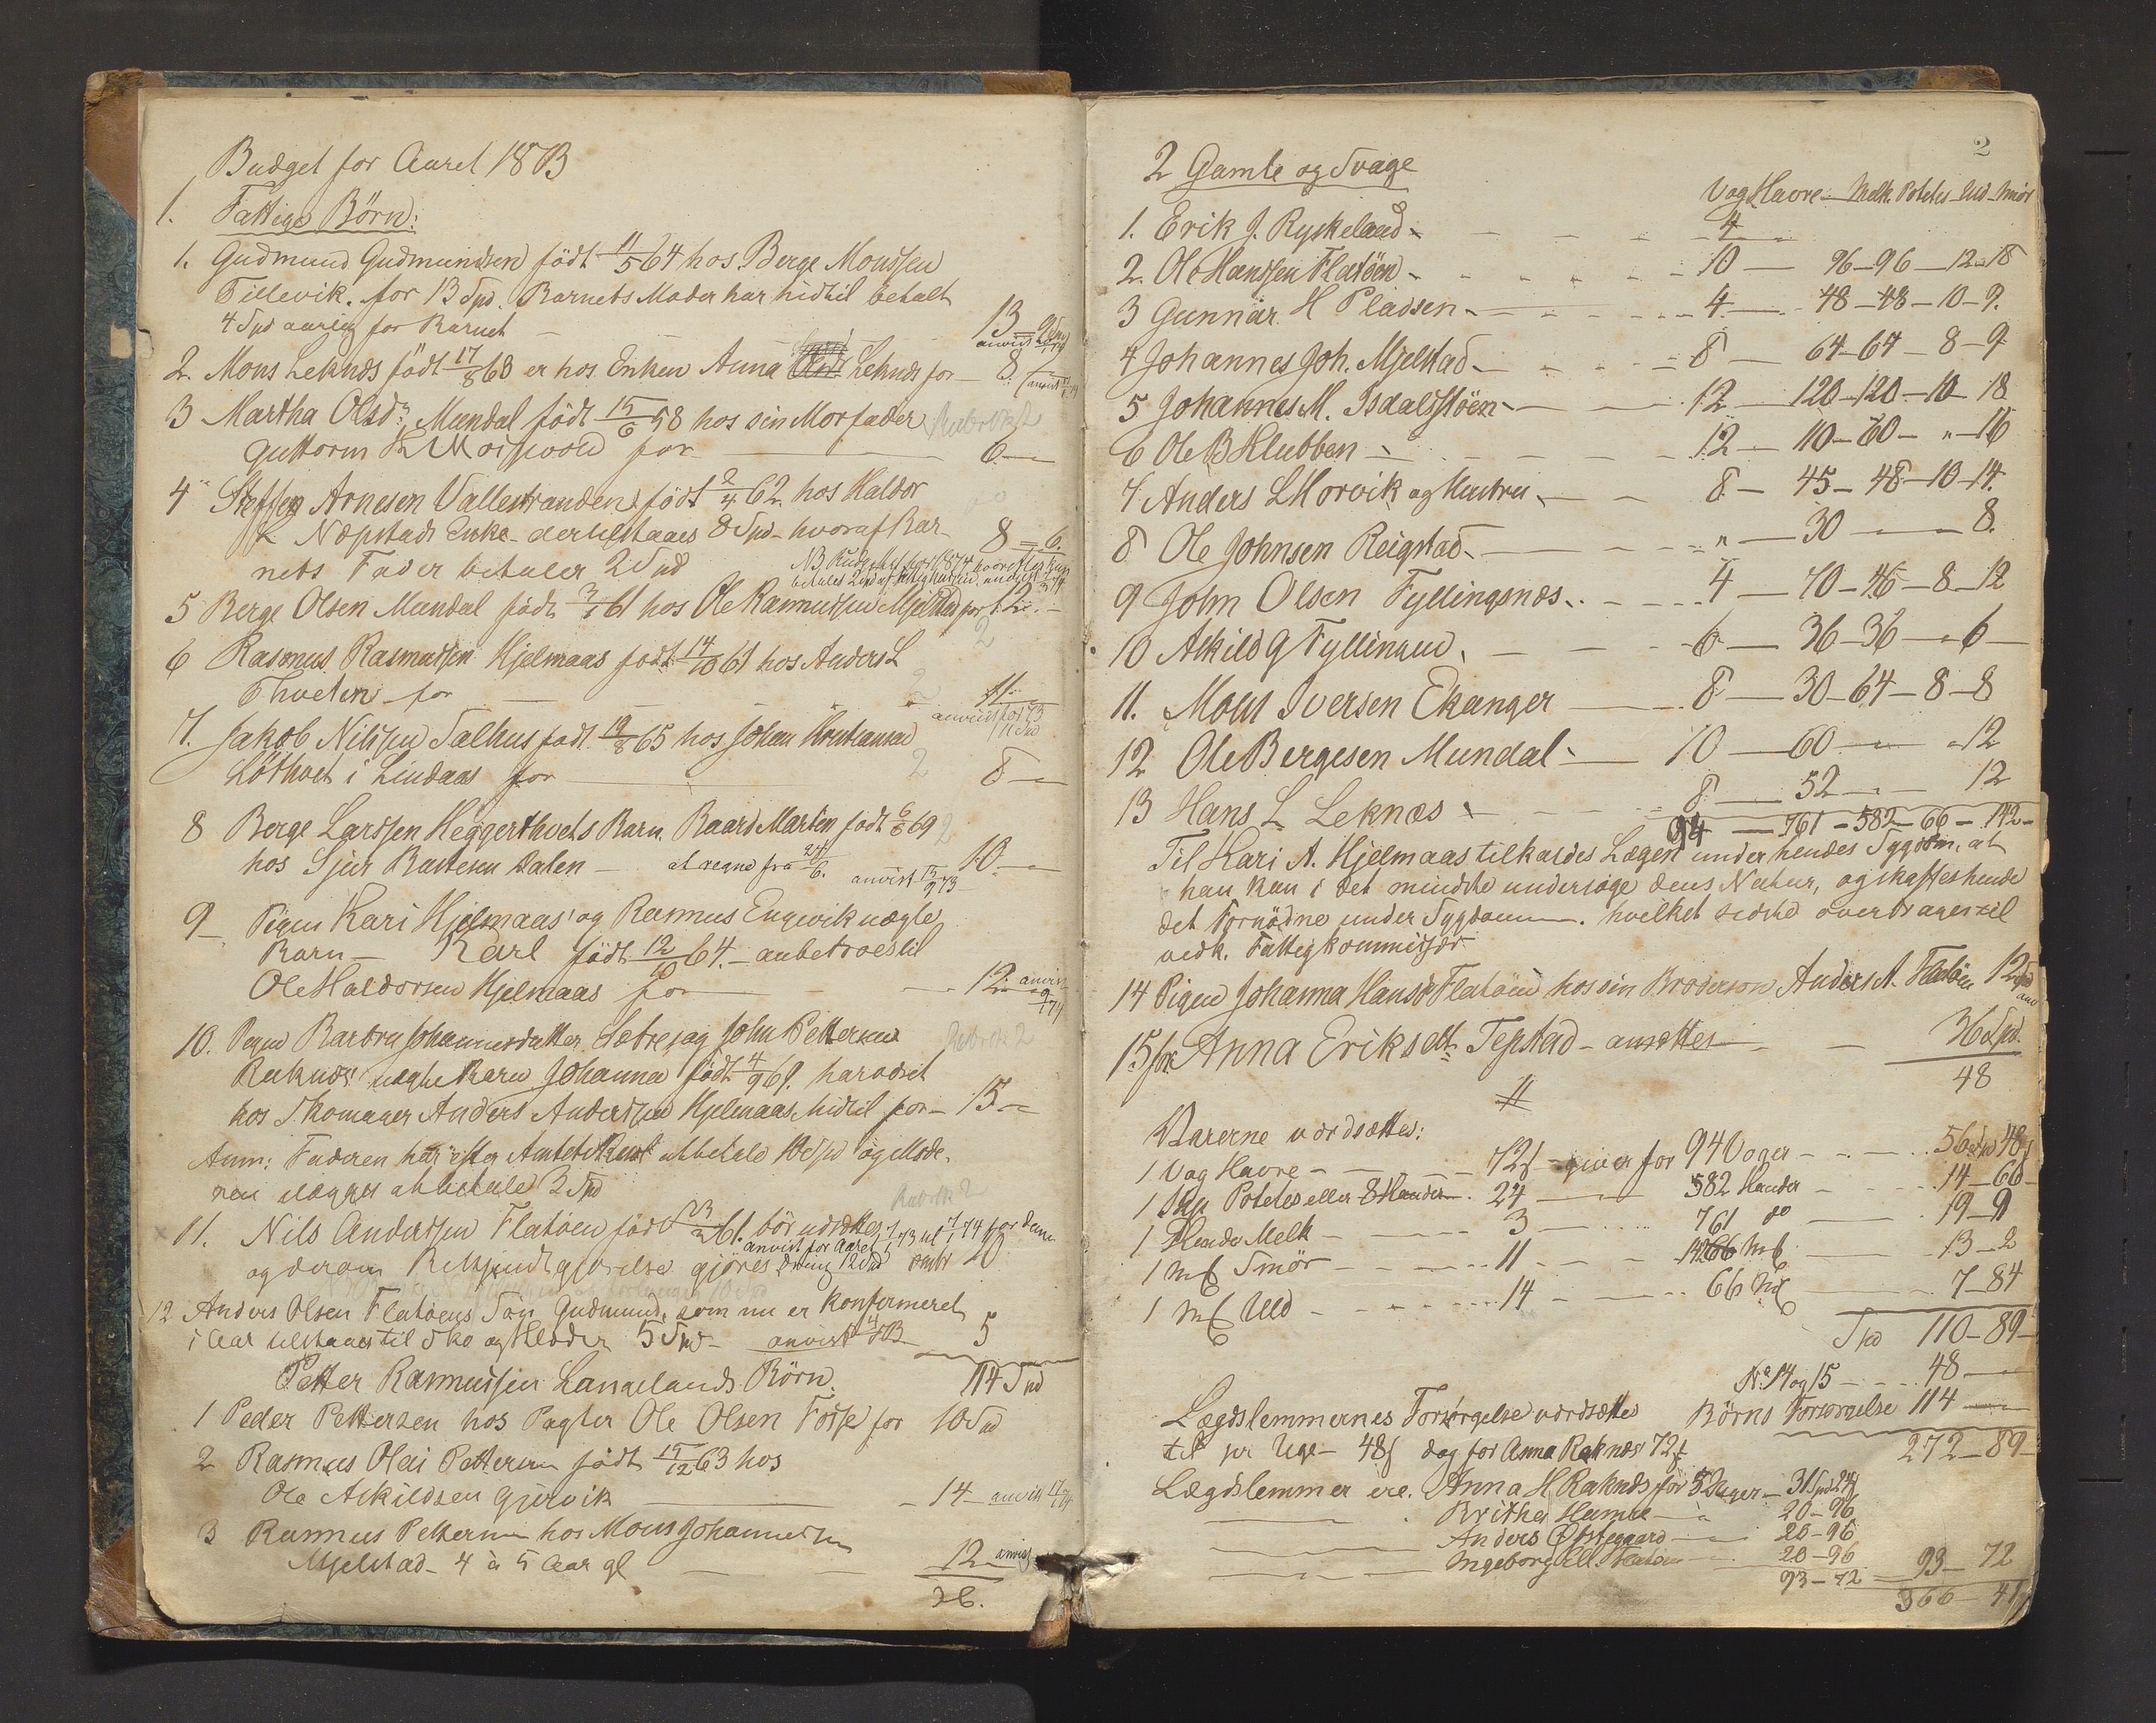 Budget for Aaret 1873
1. Fattige Börn:
1. Gudmund Gudmundsen födt 11/5 64 hos Berge Monssen
Tillevik. for 13 Spd. Barnets Moder har hidtil betalt
4 Spd aarlig for Barnet — 13 = 9 Spd
anvist
2. Mons Leknæs födt 17/8 63 er hos Enken Anna Leknæs for — 8.
anvist
3 Martha Olsdr Mundal födt 15/6 58 hos sin Morfader
Guttorm K for — 6 —
4 Steffen Arnesen Vallestranden födt 2/4 62 hos Haldor
Næpstads Enke - der tilstaaes 8 Spd - hvoraf Bar-
nets Fader betaler 2 Spd 8 = 6.
NB Budgettet for 1874 hvorefter
betales 2 Spd af Fattigkassen, anvist
5 Berge Olsen Mundal födt 3/1 61 hos Ole Rasmussen Mjelstad for 12. —
6 Rasmus Rasmussen Hjelmaas födt 14/10 61 hos Anders L
Thveten for — 11 —
anvist for 73
11 Spd
7. Jakob Nilssen Salhus födt 19/8 65 hos Johan
Löthvet i Lindaas for — 8 —
8 Berge Larssen Heggerthvets Barn. Baard Martin födt 6/8 69
hos Sjur Baardsen Dalen — at regne fra 24/6. 10. —
anvist 15/9 73
9 — Pigen Kari Hjelmaas' og Rasmus Engevik uægte
Barn — Karl födt 12/10 64. — anbetroes til
Ole Haldorsen Hjelmaas for — 12. — anvist
10. Pigen Barbru Johannesdatter Sætre og John Pettersen
Raknæs' uægte Barn Johanna födt 4/9 69. har været
hos Skomager Anders Andersen Hjelmaas hidtil for — 15 —
Anm: Faderen har efter Amtets Resol at betale 10 Spd og Mode-
ren ilægges at betale 2 Spd
11. Nils Andersen Flatöen födt 23/3 61. bör udsættes 1/1 73 til 1/1 74 for denne
anvist for Aaret
og derom Bekjendtgjörelse gjöres Dreng 12 Spd 10
12 Anders Olsen Flatöens Sön Gudmund, som nu er konfirmeret
i Aar tilstaaes til Sko og Klæder 5 Spd — anvist 4/8 73 5
114 Spd
Petter Rasmussen Langelands Börn.
1 Peder Pettersen hos Pagter Ole Olsen Fosse for 10 Spd
2 Rasmus Olai Pettersen födt 15/12 63 hos
Ole Askildsen Gjervik — 14 — anvist 17/1 74
3 Rasmus Pettersen hos Mons Johannesen
Mjelstad — 4 à 5 Aar gl — 12 — anvist
36.
2
2 Gamle og Svage
Vog Havre — Melk. Potetes — Uld — Smör
1. Erik J. Ryskeland — 4 —
2. Ole Hanssen Flatöen — 10 — 96 — 96 — 12 — 18
3 Gunnar H Pladsen — 4 — 48 — 48 — 10 — 9.
4 Johannes Joh. Mjelstad — 8 — 64 — 64 — 8 — 9
5 Johannes M. Isdalsstöen — 12 — 120 — 120 — 10 — 18
6 Ole B Klubben — 12 — 10 — 60 — " — 16
7 Anders L Horvik og Hustru — 8 — 45 — 48 — 10 — 14.
8 Ole Johnsen Reigstad — " — 30 — — 8.
9 John Olsen Fyllingsnæs — 4 — 70 — 46 — 8 — 12
10 Askild G Fyllingen — 6 — 36 — 36 — " 6 —
11. Mons Iversen Ekanger — 8 — 30 — 64 — 8 — 8
12 Ole Bergesen Mundal — 10 — 60 — " — " 12
13 Hans L Leknæs — 8 — 52 — 12
94 — 761 — 582 — 66 — 142 —
Til Kari A. Hjelmaas tilkaldes Lægen under hendes Sygdom, at
han kan i det mindste undersöge dens Natur, og skaffes hende
det Fornödne under Sygdommen. hvilket sidste overdrages til
vedk. Fattigkommissær
14 Pigen Johanna Hansd Flatöen hos sin Brodersön Anders A. Flatöen 12 Spd
15 for Anna Eriksdt. Tepstad — ansættes — 36 Spd.
48
Varerne værdsættes:
1 Vog Havre — 72 ß — giver for 94 Voger — 56 Spd 48 ß
1 Skp Potetes eller 8 Kander — 24 — 582 Kander — 14 — 66
1 Kande Melk — 3 — 761 do — 19 — 9
1 Mk Smör — 11 — 142 Mk — 13 — 2
1 Mk Uld — 14 — 66 Mk — 7 — 84
Spd 110 — 89 —
No 14 og 15 — 48 —
Lægdslemmernes Forsörgelse værdsættes Börns Forsörgelse 114 —
til pr Uge — 48 ß dog for Anna Raknæs 72 ß 272 — 89 —
Lægdslemmer ere. Anna H Raknæs for 52 Uger — 31 Spd 24 ß
— Britha Hamre — 20 — 96
— Anders Östegaard — 20 — 96
— Ingeborg M. Flatöen — 20 — 96
93 — 72 = 93 — 72
366 — 41